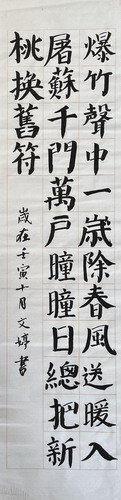 爆竹聲中一歲除春風送暖入
屠蘇千門萬戶曈曈日總把新
桃換舊符
歲在壬寅十月文婷書